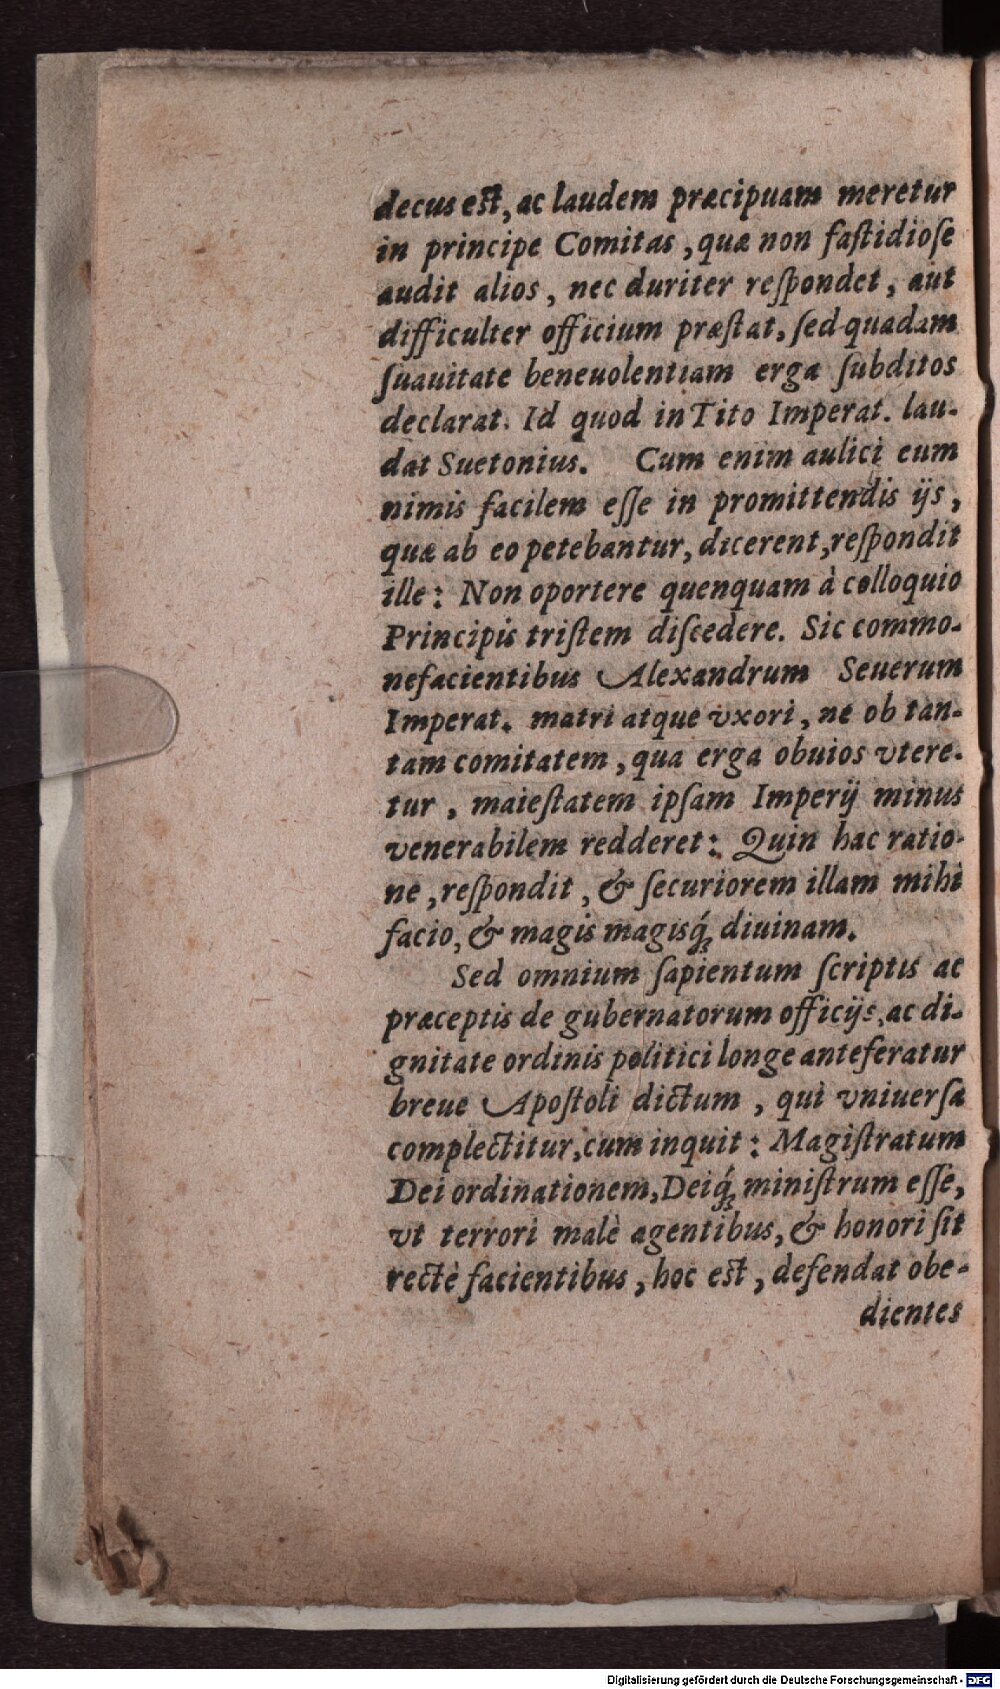 decus est, ac laudem præcipuam meretur
in principe Comitas, quæ non faſtidioſe
audit alios, nec duriter reſpondet, aut
difficulter officium præſtat, ſed quadam
ſuauitate beneuolentiam erga ſubditos
declarat. Id quod in Tito Imperat. lau-
dat Suetonius. Cum enim aulici eum
nimis facilem eſſe in promittendis ijs,
quæ ab eo petebantur, dicerent, reſpondit
ille: Non oportere quenquam à colloquio
Principis triſtem diſcedere. Sic commo-
nefacientibus Alexandrum Seuerum
Imperat. matri atque vxori, ne ob tan-
tam comitatem, qua erga obuios vtere-
tur, maieſtatem ipſam Imperij minus
venerabilem redderet: Quin hac ratio-
ne, reſpondit, & ſecuriorem illam mihi
facio, & magis magisq́; diuinam.
Sed omnium ſapientum ſcriptis ac
præceptis de gubernatorum officijs, ac di-
gnitate ordinis politici longe anteferatur
breue Apoſtoli dictum, qui vniuerſa
complectitur, cum inquit: Magiſtratum
Dei ordinationem, Deiq́; miniſtrum eſſe,
vt terrori malè agentibus, & honori ſit
rectè facientibus, hoc est, defendat obe-
dientes
Digitalisierung gefördert durch die Deutsche Forschungsgemeinschaft - DFG